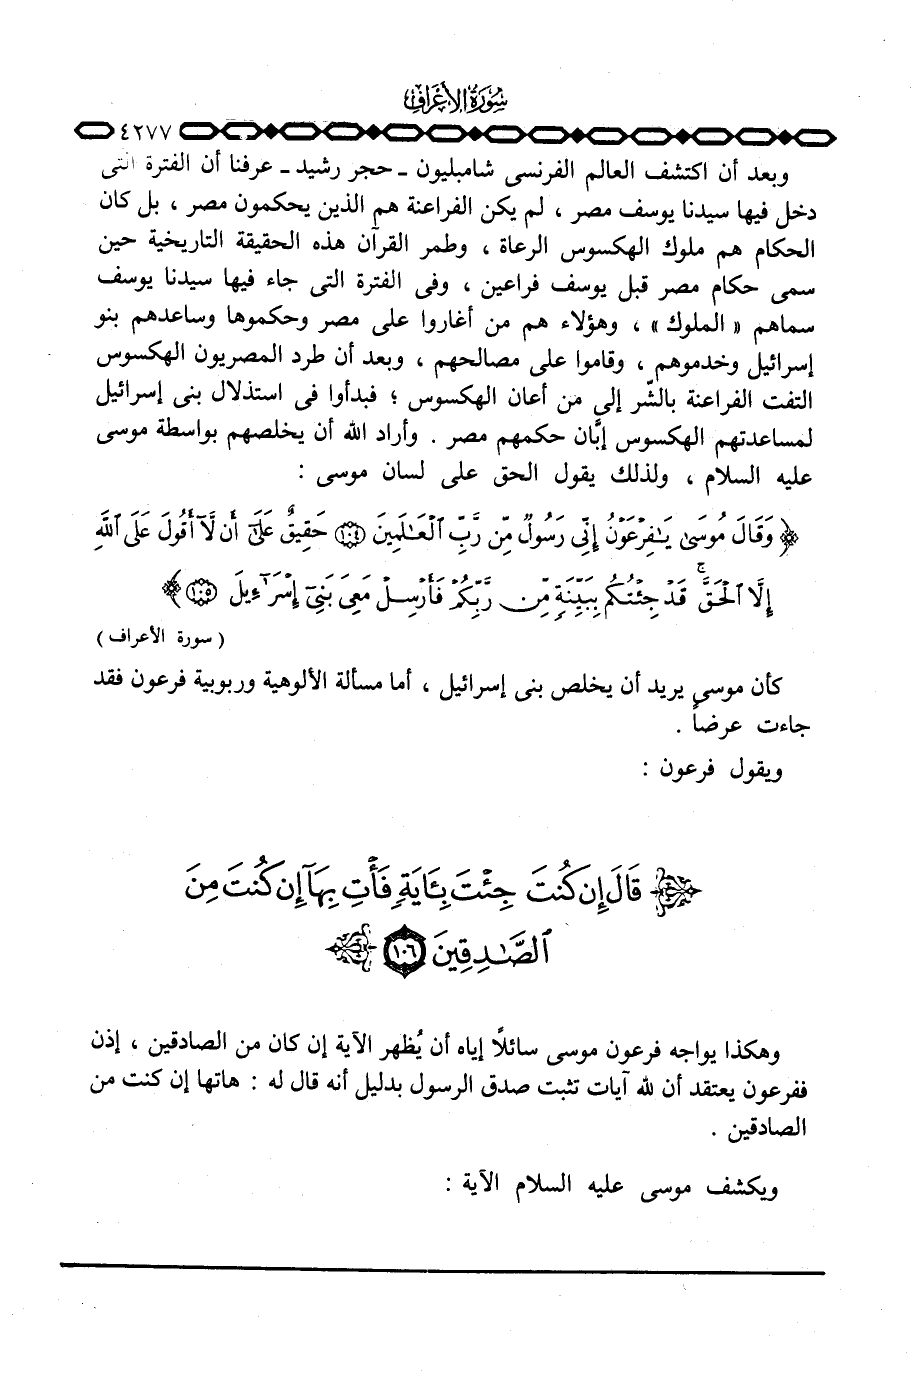 سُورَةُ الأَعْرَافِ
٤٢٧٧
وبعد أن اكتشف العالم الفرنسى شامبليون ـ حجر رشيد ـ عرفنا أن الفترة التى
دخل فيها سيدنا يوسف مصر ، لم يكن الفراعنة هم الذين يحكمون مصر ، بل كان
الحكام هم ملوك الهكسوس الرعاة ، وطمر القرآن هذه الحقيقة التاريخية حين
سمى حكام مصر قبل يوسف فراعين ، وفى الفترة التى جاء فيها سيدنا يوسف
سماهم « الملوك» ، وهؤلاء هم من أغاروا على مصر وحكموها وساعدهم بنو
إسرائيل وخدموهم ، وقاموا على مصالحهم ، وبعد أن طرد المصريون الهكسوس
التفت الفراعنة بالشّر إلى من أعان الهكسوس ؛ فبدأوا فى استذلال بنى إسرائيل
لمساعدتهم الهكسوس إبَّان حكمهم مصر . وأراد الله أن يخلصهم بواسطة موسى
عليه السلام ، ولذلك يقول الحق على لسان موسى :
﴿ وَقَالَ مُوسَىٰ يَـٰفِرْعَوْنُ إِنِّى رَسُولٌ مِّن رَّبِّ ٱلْعَـٰلَمِينَ ١٠٤ حَقِيقٌ عَلَىٰٓ أَن لَّآ أَقُولَ عَلَى ٱللَّهِ
إِلَّا ٱلْحَقَّ ۚ قَدْ جِئْتُكُم بِبَيِّنَةٍ مِّن رَّبِّكُمْ فَأَرْسِلْ مَعِىَ بَنِىٓ إِسْرَٰٓءِيلَ ١٠٥ ﴾
( سورة الأعراف )
كأن موسى يريد أن يخلص بنى إسرائيل ، أما مسألة الألوهية وربوبية فرعون فقد
جاءت عرضاً .
ويقول فرعون :
﴿ قَالَ إِن كُنتَ جِئْتَ بِـَٔايَةٍ فَأْتِ بِهَآ إِن كُنتَ مِنَ
ٱلصَّـٰدِقِينَ ١٠٦ ﴾
وهكذا يواجه فرعون موسى سائلاً إياه أن يُظهر الآية إن كان من الصادقين ، إذن
ففرعون يعتقد أن لله آيات تثبت صدق الرسول بدليل أنه قال له : هاتها إن كنت من
الصادقين .
ويكشف موسى عليه السلام الآية :